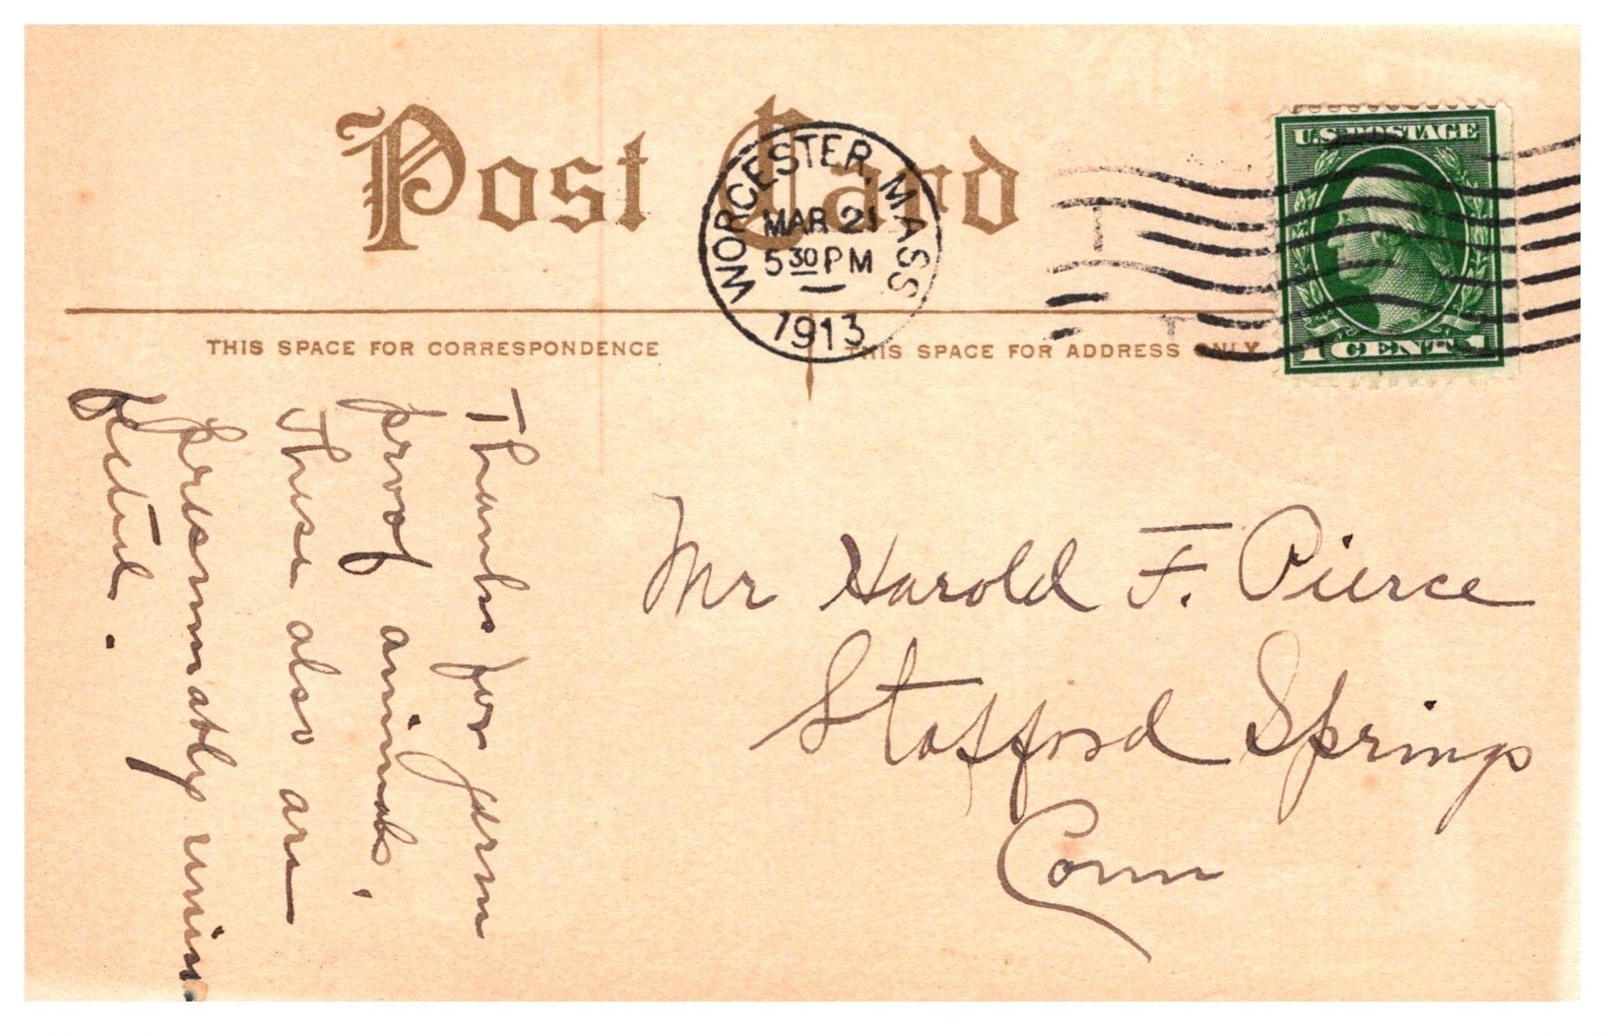 Post Card
WORCESTER, MASS
MAR 21
5 30 PM
1913
U.S. POSTAGE
1 CENT 1
THIS SPACE FOR CORRESPONDENCE
THIS SPACE FOR ADDRESS ONLY
Thanks for germ
proof animals.
These also are
presumably
Mr Harold F. Pierce
Stafford Springs
Conn